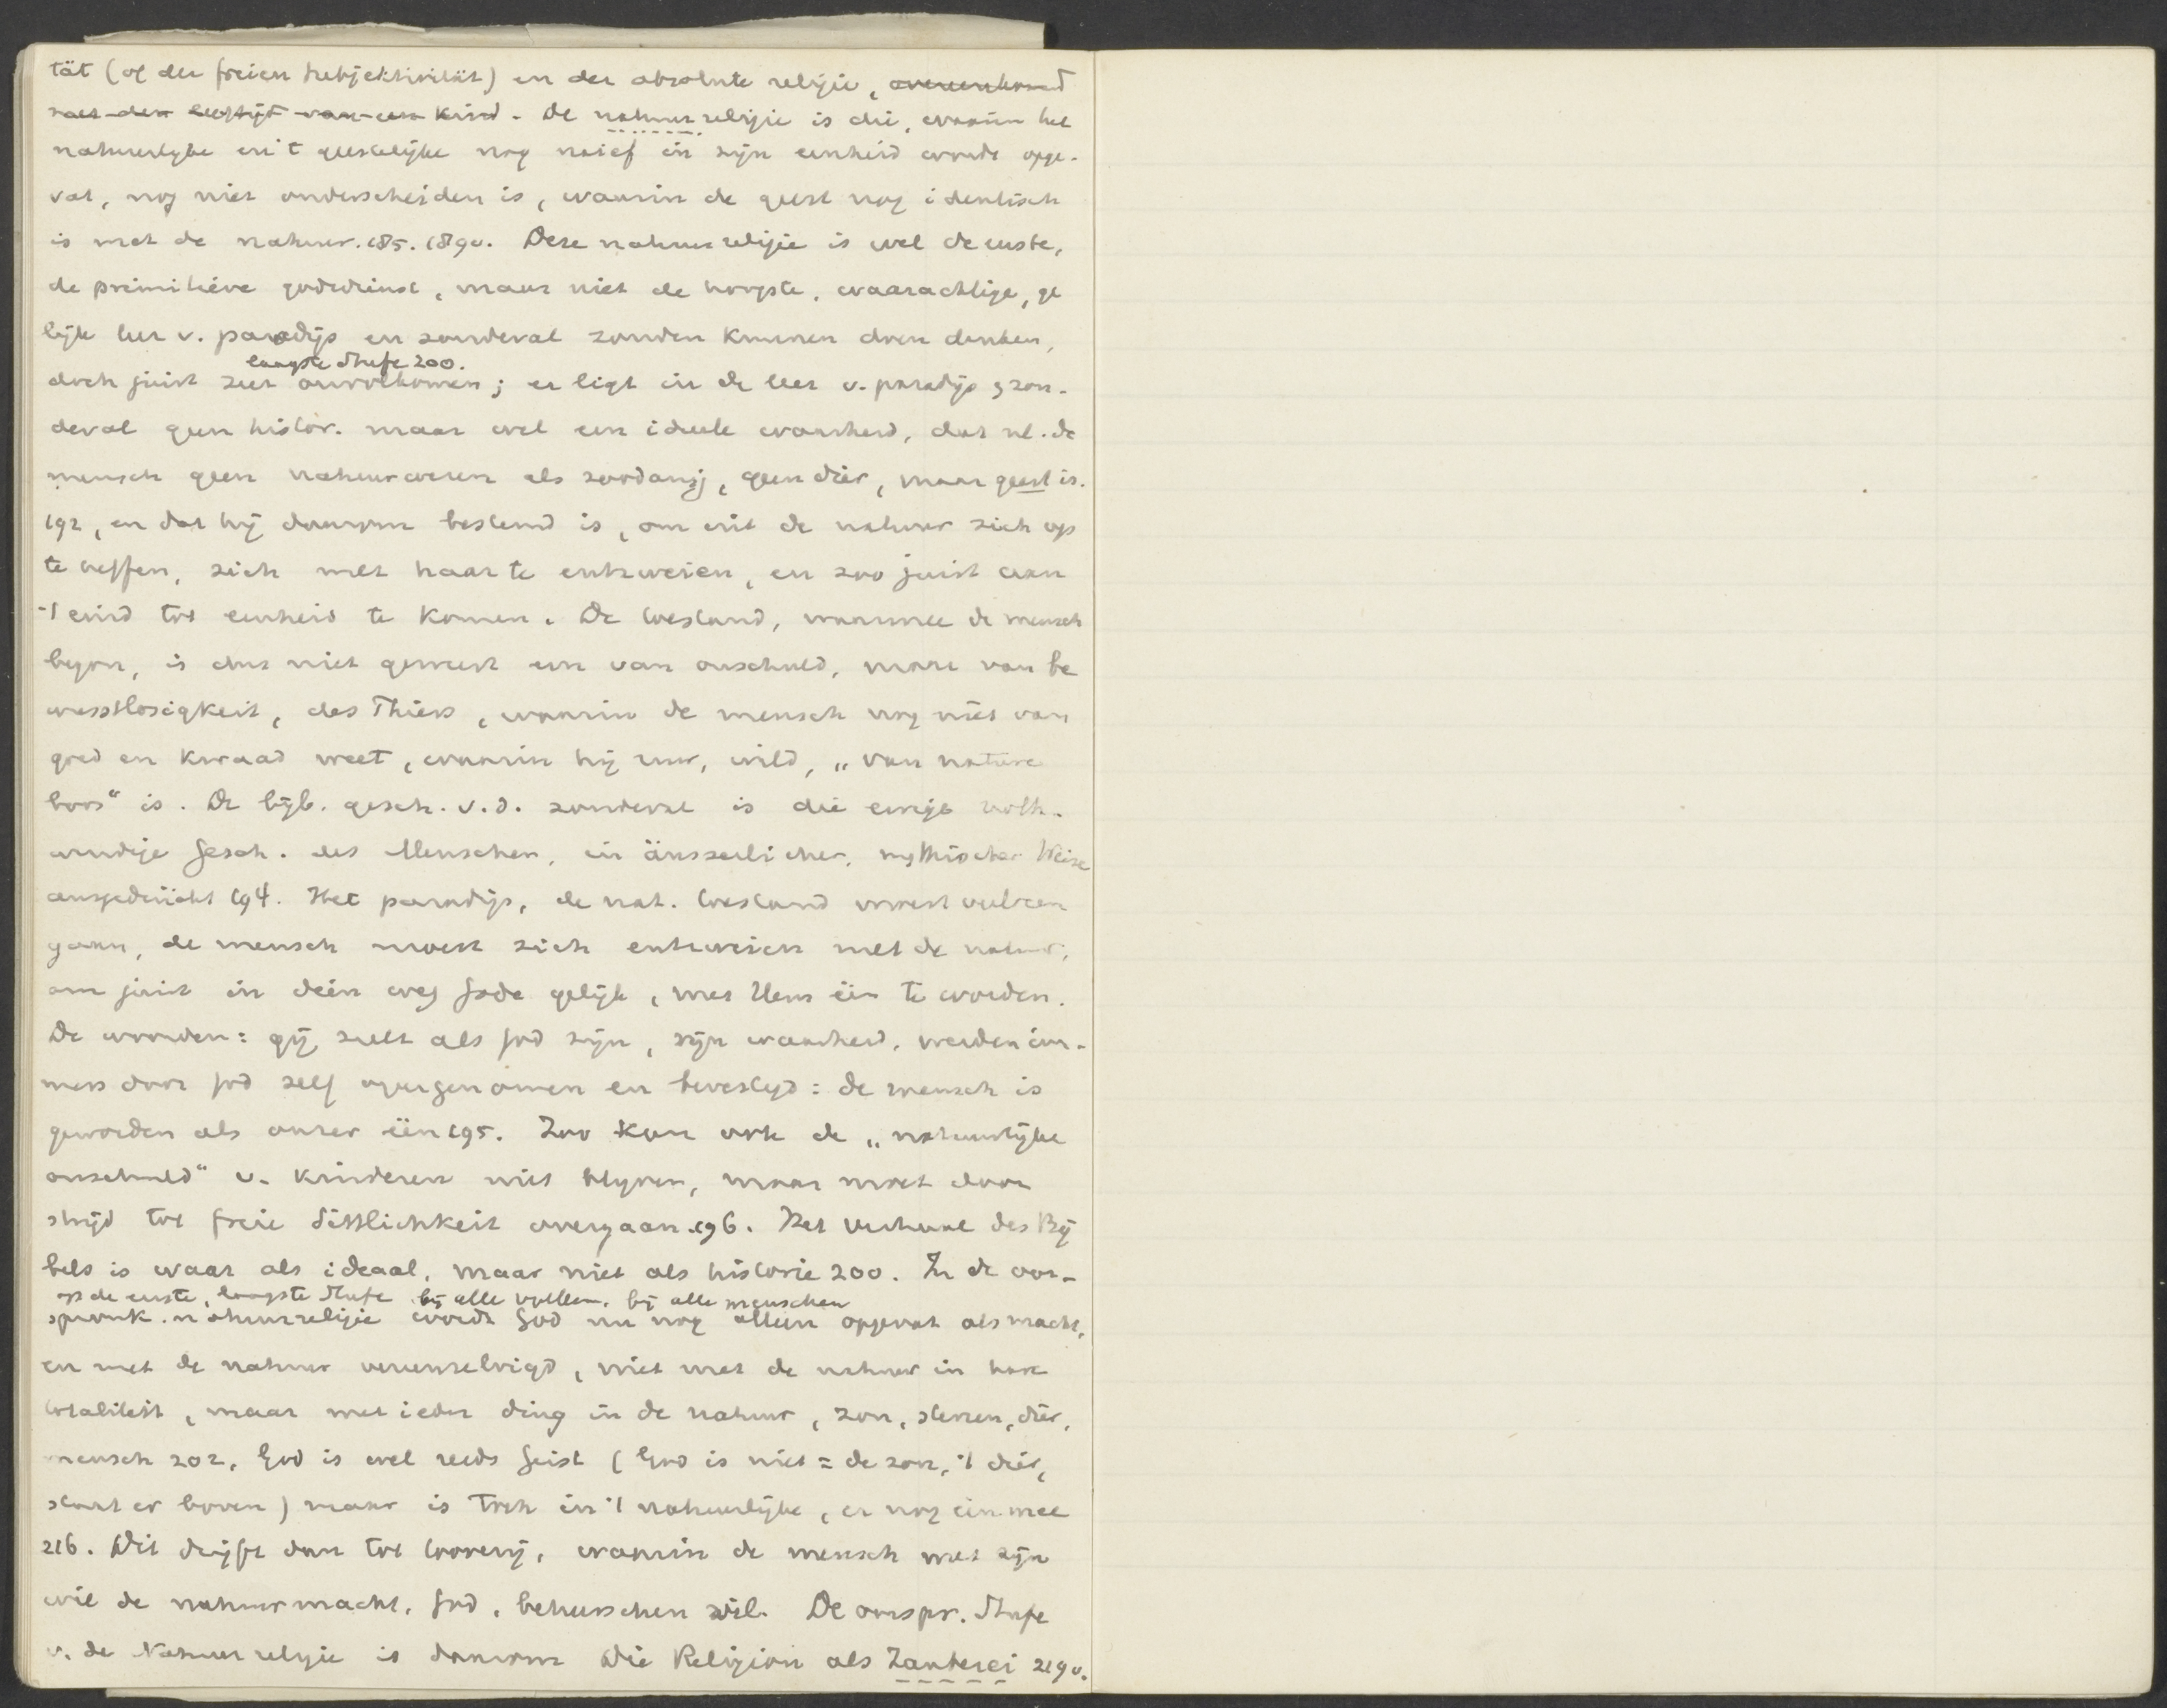 tät (of der freien Subjektivität) en der absolute religie, overeenkomend
met den leeftijd van een kind. De natuurreligie is die, waarin het
natuurlijke en 't geestelijke nog naief in zijn eenheid wordt opge-
vat, nog niet onderscheiden is, waarin de geest nog identisch
is met de natuur. 185. 189v. Deze natuurreligie is wel de eerste,
de primitieve godsdienst, maar niet de hoogste, waarachtige, ge
lijk leer v. paradijs en zondeval zouden kunnen doen denken,
laagste Stufe 200.
doch juist zeer onvolkomen; er ligt in de leer v. paradijs & zon-
deval geen histor. maar wel een ideele waarheid, dat nl. de
mensch geen natuurwezen als zoodanig, geen dier, maar geest is.
192, en dat hij daarom bestemd is, om uit de natuur zich op
te heffen, zich met haar te entzweien, en zoo juist aan
't eind tot eenheid te komen. De toestand, waarmee de mensch
begon, is dus niet geweest een van onschuld, maar van be
wusstlosigkeit, des Thiers, waarin de mensch nog niet van
goed en kwaad weet, waarin hij ruw, wild, „van nature
boos" is. De bijb. gesch. v. d. zondeval is die ewige noth-
wendige Gesch. des Menschen, in äusserlicher, mythischer Weise
ausgedrückt 194. Het paradijs, de nat. toestand moest verloren
gaan, de mensch moest zich entzweien met de natuur,
om juist in dien weg Gode gelijk, met Hem één te worden.
De woorden: gij zult als God zijn, zijn waarheid, werden im-
mers door God zelf overgenomen en bevestigd: de mensch is
geworden als onzer één 195. Zoo kan ook de „natuurlijke
onschuld" v. kinderen niet blijven, maar moet door
strijd tot freie Sittlichkeit overgaan. 196. Het verhaal des Bij
bels is waar als ideaal, maar niet als historie 200. In de oor-
op de eerste, laagste Stufe bij alle volken, bij alle menschen
spronk. natuurreligie wordt God nu nog alleen opgevat als macht,
en met de natuur vereenzelvigd, niet met de natuur in hare
totaliteit, maar met ieder ding in de natuur, zon, sterren, dier,
mensch 202. God is wel reeds Geist (God is niet = de zon, 't dier,
staat er boven) maar is toch in 't natuurlijke, er nog één mee
216. Dit drijft dan tot tooverij, waarin de mensch met zijn
wil de natuurmacht, God, beheerschen wil. De oorspr. Stufe
v. de Natuurreligie is daarom Die Religion als Zauberei 219v.